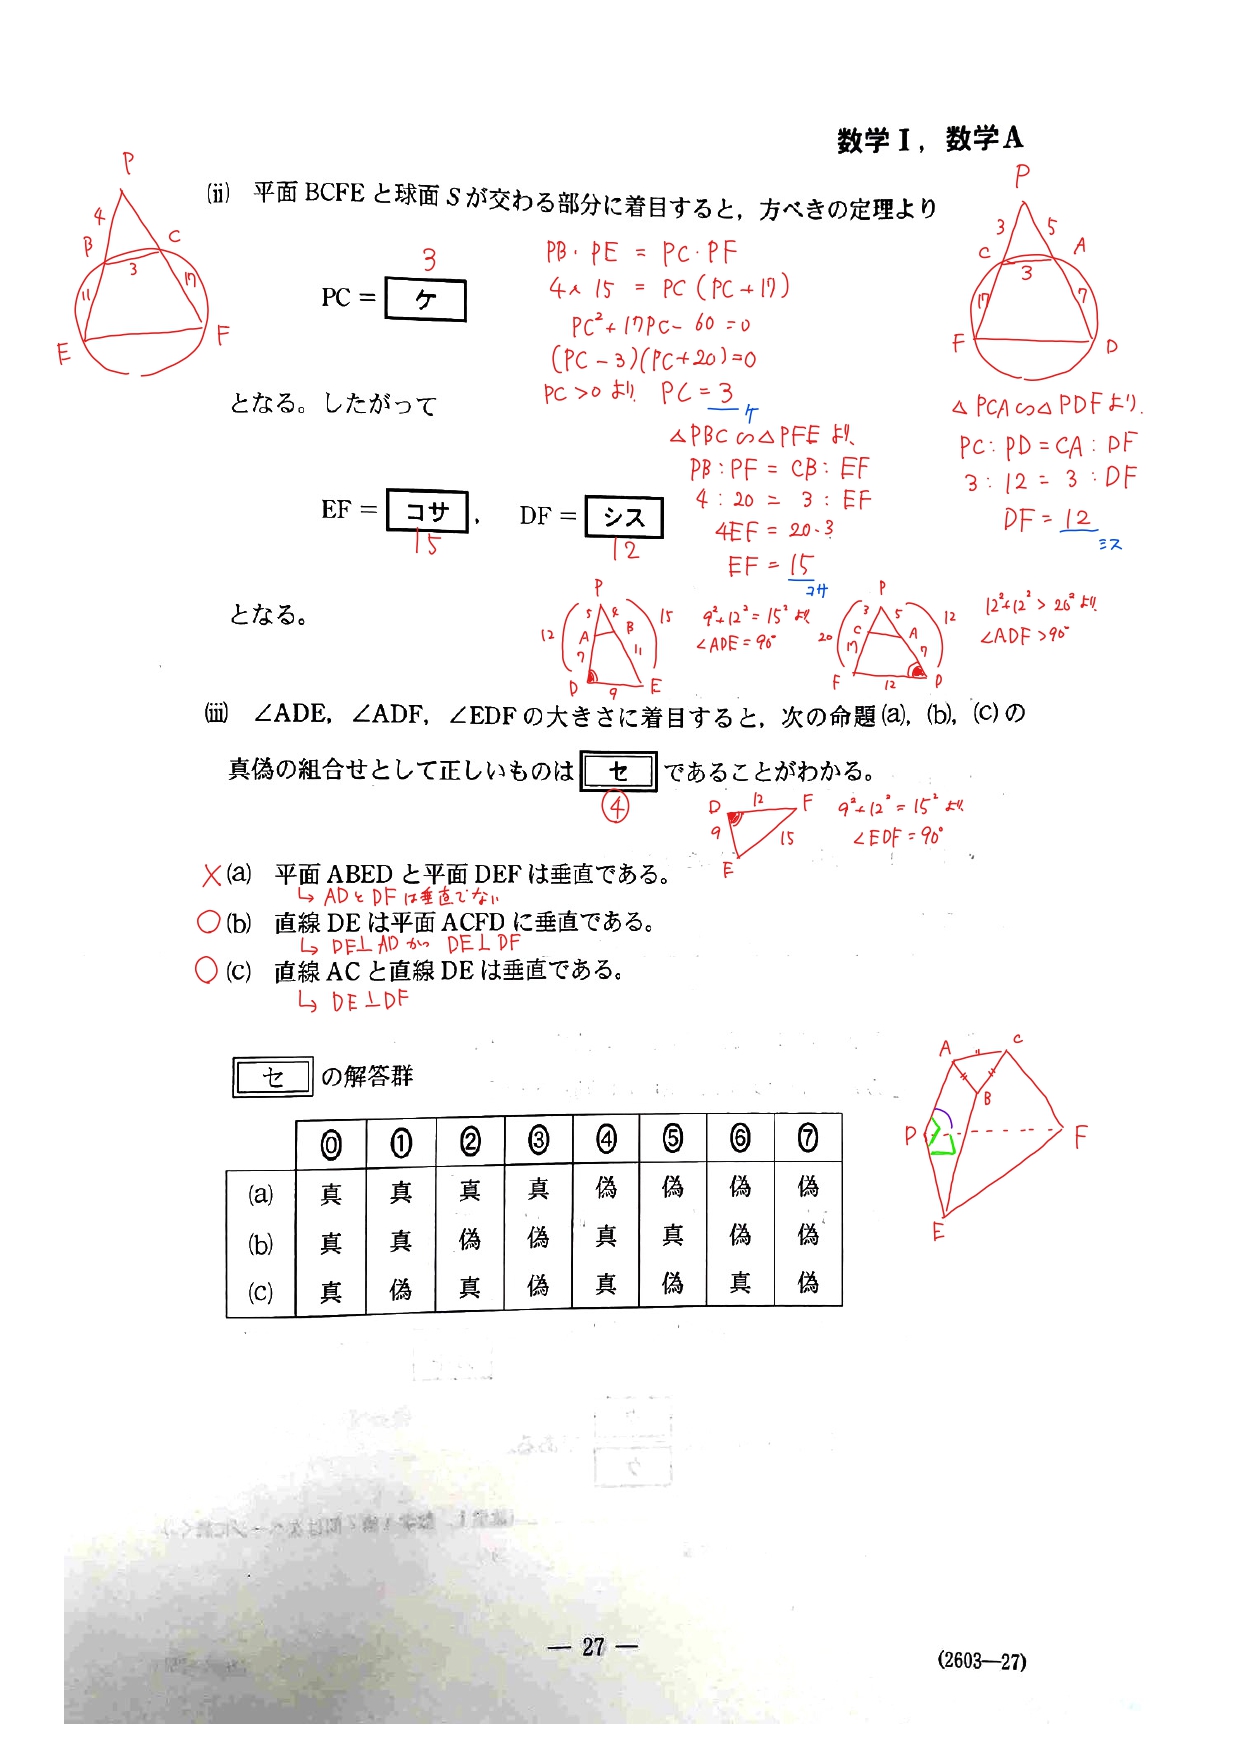 数学Ⅰ，数学A
(ii) 平面 BCFE と球面 S が交わる部分に着目すると，方べきの定理より
P
4
B
C
3
11
17
E
F
PC = ケ
3
PB・PE = PC・PF
4×15 = PC(PC+17)
PC²+17PC-60=0
(PC-3)(PC+20)=0
PC>0より PC=3
ケ
P
3
5
C
A
3
17
7
F
D
となる。したがって
△PBC∽△PFEより、
PB:PF = CB:EF
4:20 = 3:EF
4EF = 20・3
EF = 15
コサ
△PCA∽△PDFより、
PC:PD=CA:DF
3:12=3:DF
DF=12
シス
EF = コサ ， DF = シス
15
12
となる。
P
5
B
A
12
15
7
11
D
9
E
9²+12²=15²より
∠ADE=90°
P
3
5
C
A
20
12
17
7
F
12
D
12²+12²>20²より
∠ADF>90°
(iii) ∠ADE，∠ADF，∠EDF の大きさに着目すると，次の命題(a)，(b)，(c)の
真偽の組合せとして正しいものは セ であることがわかる。
④
D
12
F
9
15
E
9²+12²=15²より
∠EDF=90°
×(a) 平面 ABED と平面 DEF は垂直である。
↳ ADとDFは垂直でない
○(b) 直線 DE は平面 ACFD に垂直である。
↳ DE⊥ADかつDE⊥DF
○(c) 直線 AC と直線 DE は垂直である。
↳ DE⊥DF
セ の解答群
⓪ ① ② ③ ④ ⑤ ⑥ ⑦
(a) 真 真 真 真 偽 偽 偽 偽
(b) 真 真 偽 偽 真 真 偽 偽
(c) 真 偽 真 偽 真 偽 真 偽
A
C
B
P
F
E
— 27 —
(2603—27)